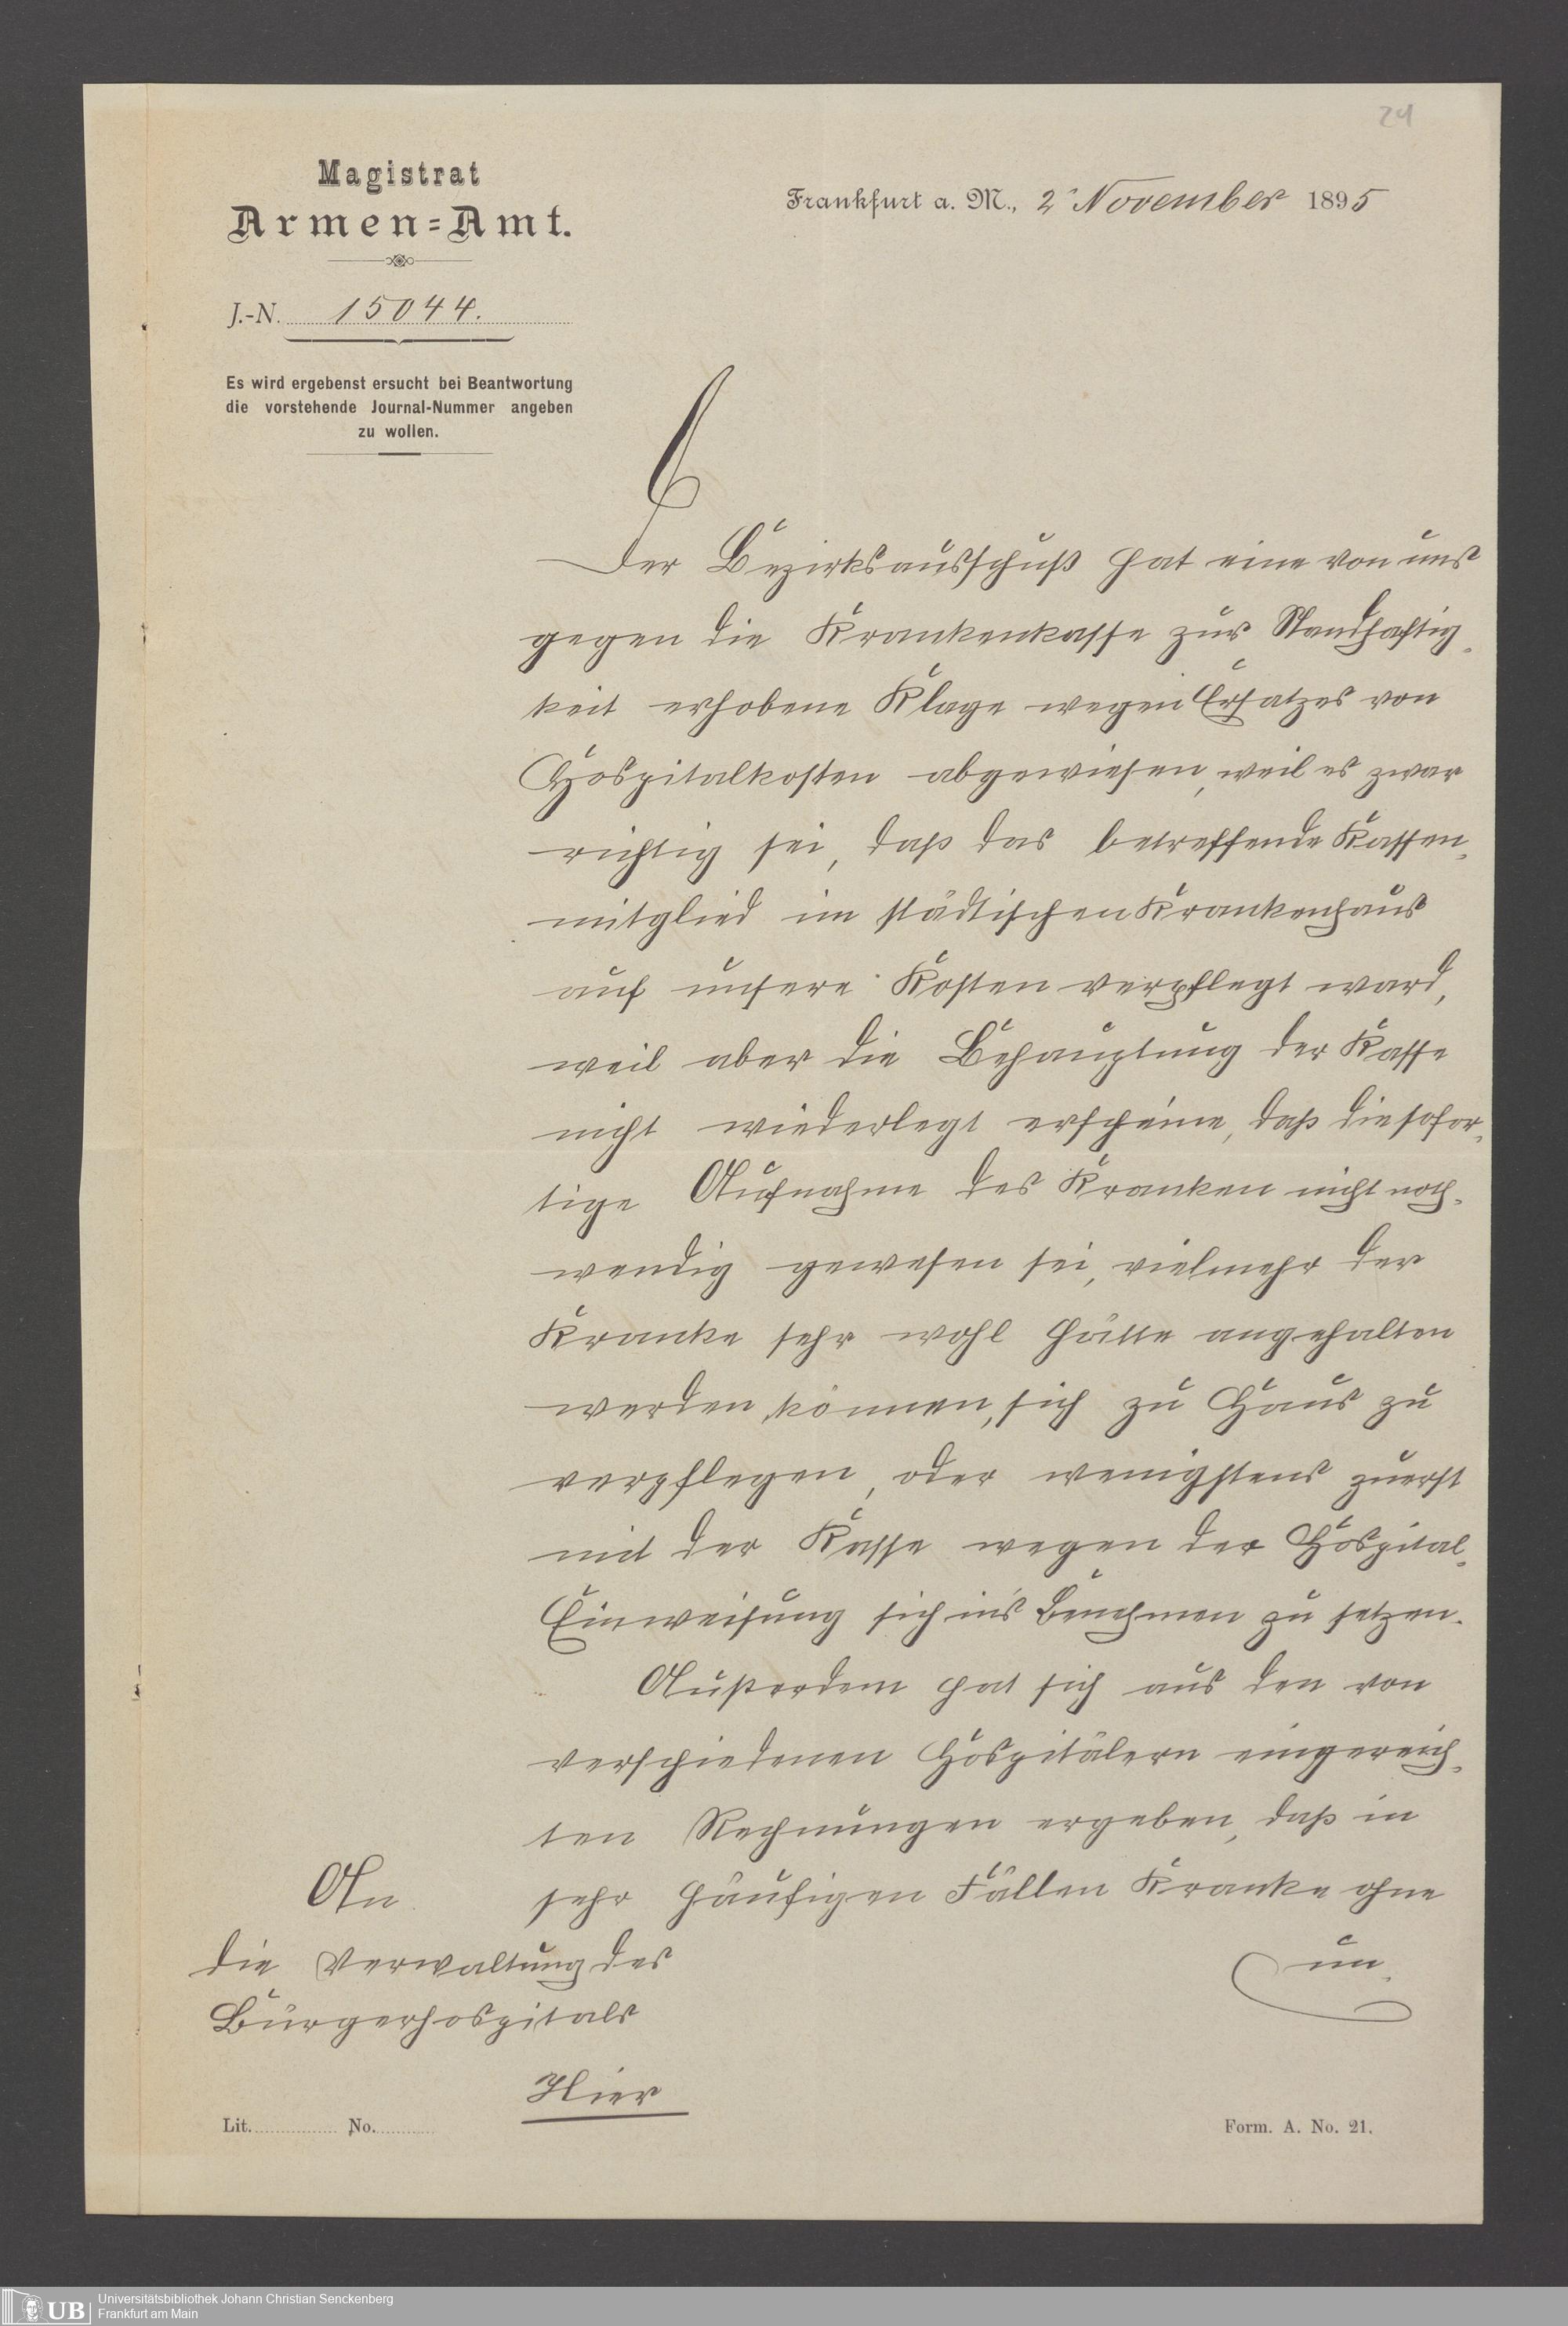 24
Magistrat
Armen=Amt.
Frankfurt a. M., 2. November 1895
J.-N. 15044.
Es wird ergebenst ersucht bei Beantwortung
die vorstehende Journal-Nummer angeben
zu wollen.
Der Bezirksausschuß hat eine von uns
gegen die Krankenkasse zur Standhaftig-
keit erhobene Klage wegen Ersatzes von
Hospitalkosten abgewiesen, weil es zwar
richtig sei, daß das betreffende Kassen-
mitglied im städtischen Krankenhaus
auf unsere Kosten verpflegt ward,
weil aber die Behauptung der Kasse
nicht wiederlegt erscheine, daß die sofor-
tige Aufnahme des Kranken nicht noth-
wendig gewesen sei, vielmehr der
Kranke sehr wohl hätte angehalten
werden können, sich zu Haus zu
verpflegen, oder wenigstens zuerst
mit der Kasse wegen der Hospital-
Einweisung sich in's Benehmen zu setzen.
Außerdem hat sich aus den von
verschiedenen Hospitälern eingereich-
ten Rechnungen ergeben, daß in
sehr häufigen Fällen Kranke ohne
un-
An
die Verwaltung des
Bürgerhospitals
Hier
Lit. No.
Form. A. No. 21.
UB
Universitätsbibliothek Johann Christian Senckenberg
Frankfurt am Main